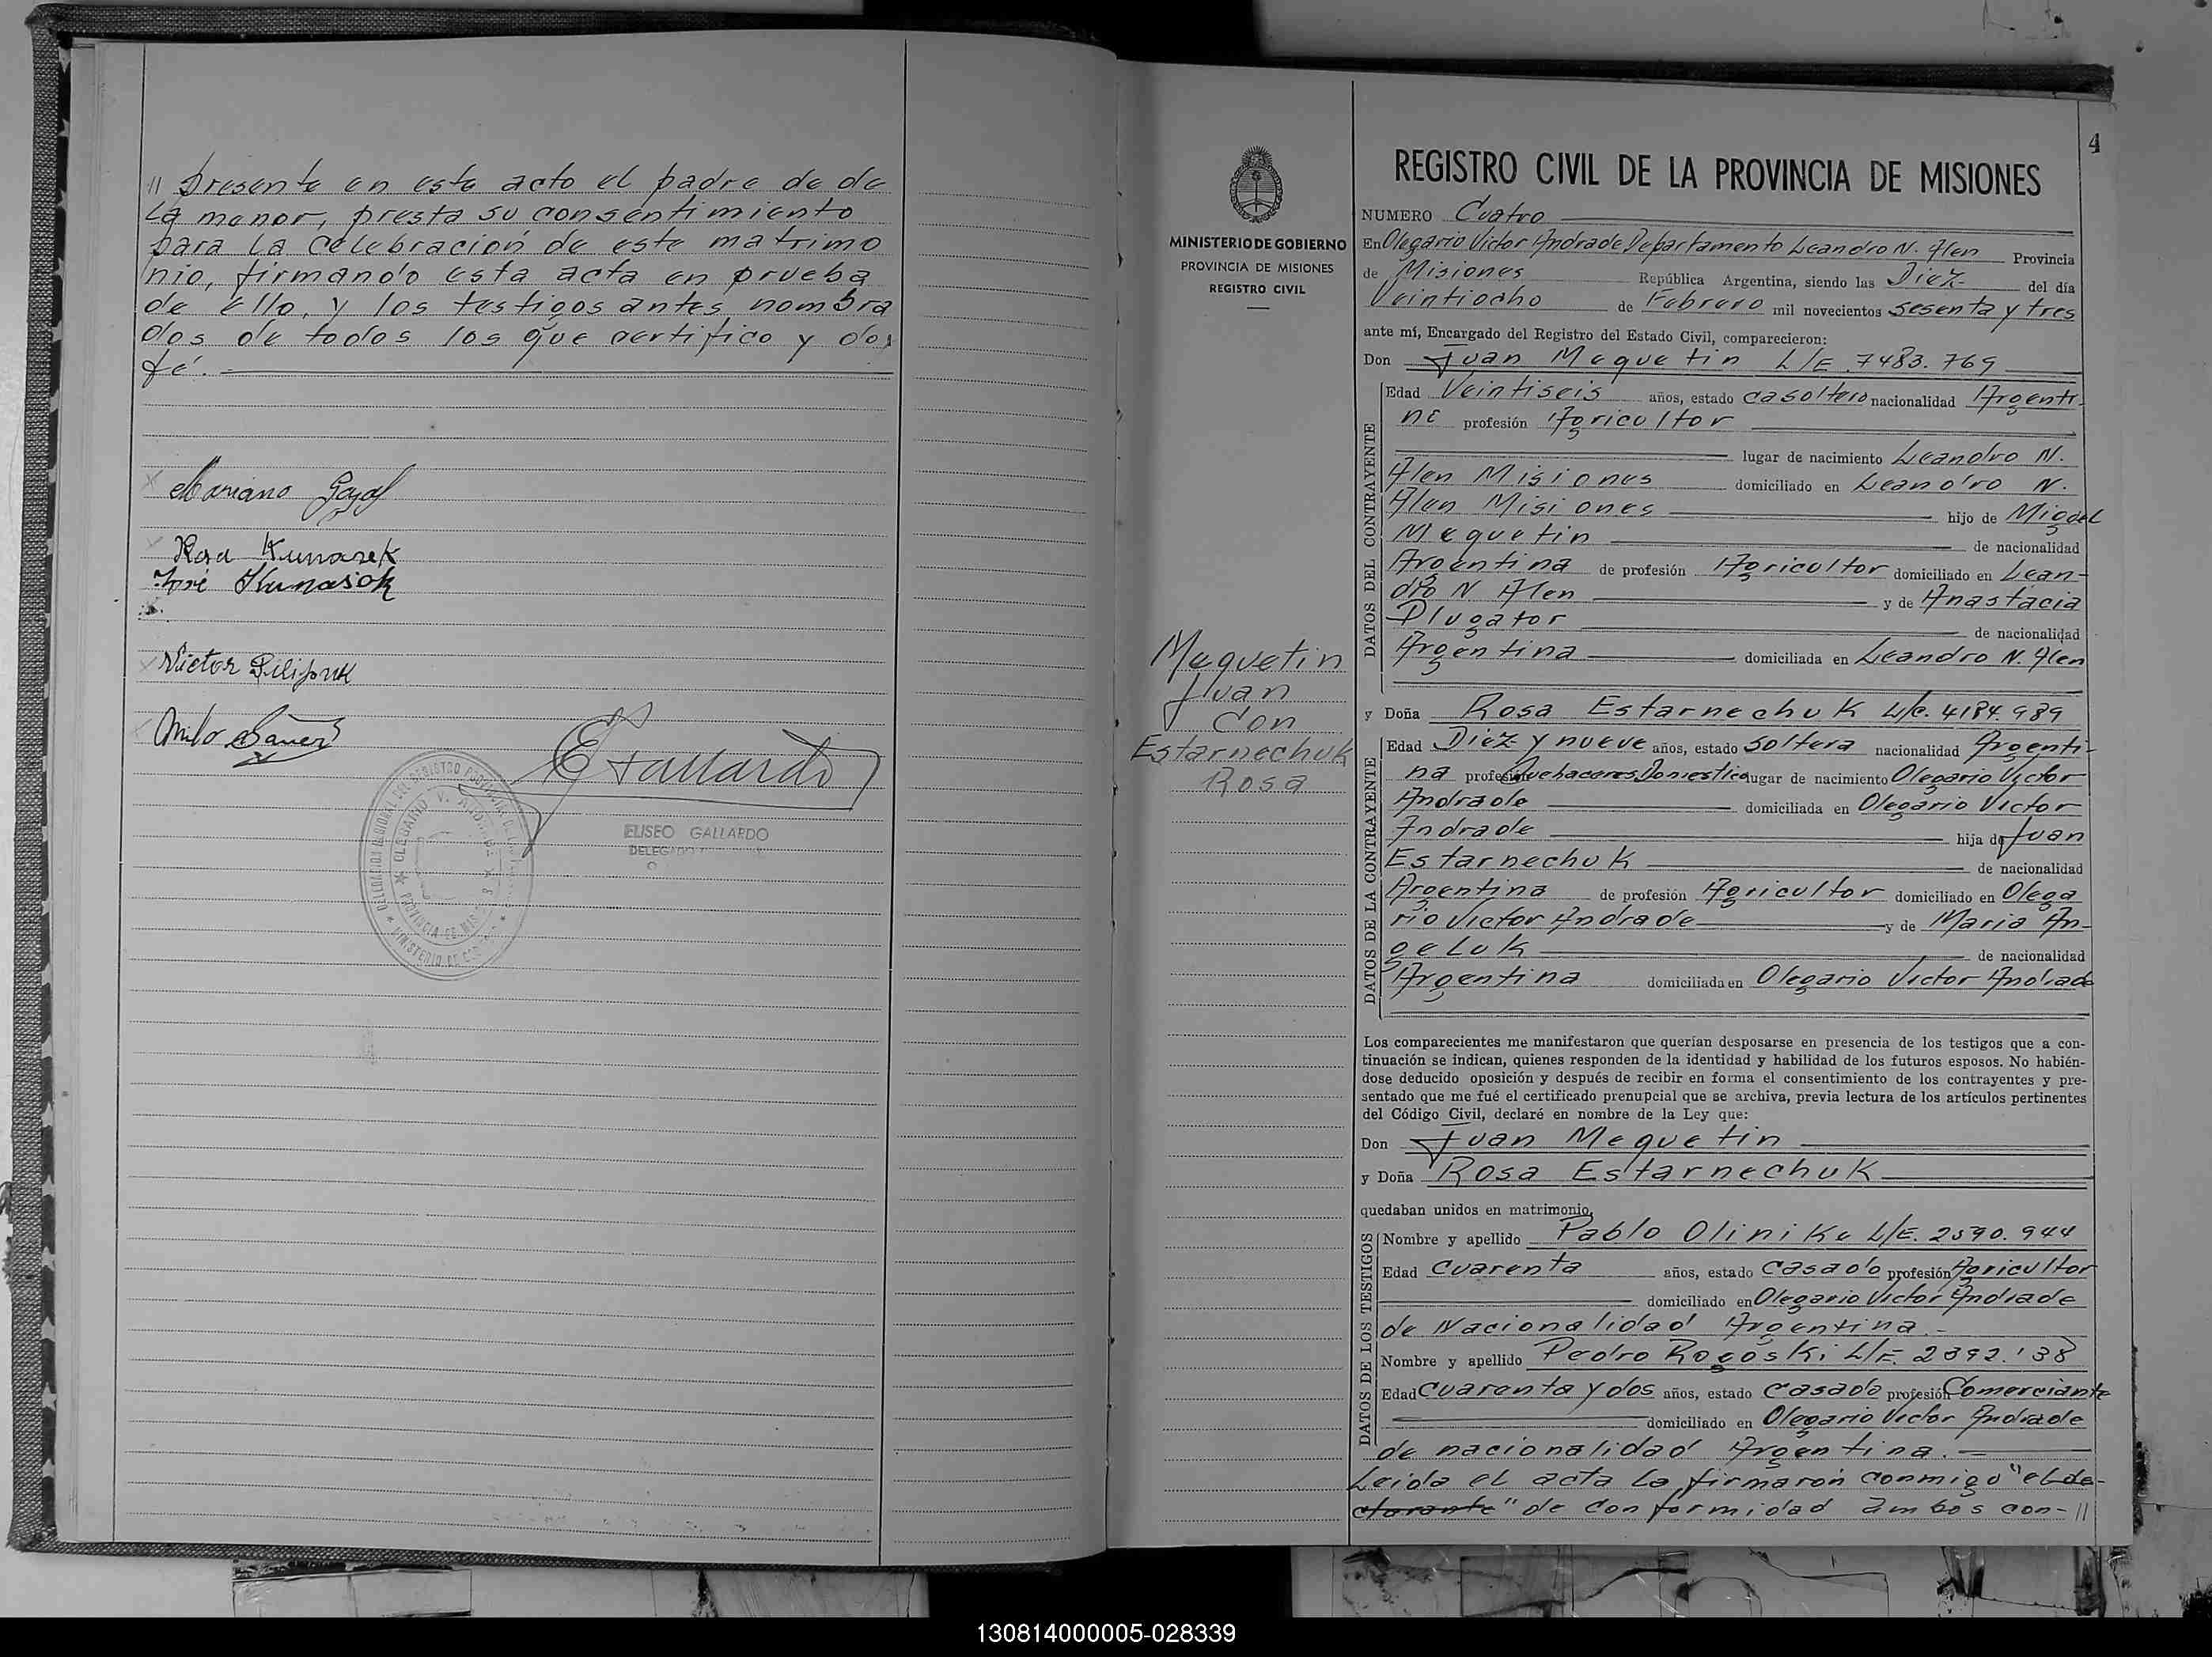 // presente en este acto el padre de de
la menor, presta su consentimiento
para la celebración de este matrimo
nio, firmando esta acta en prueba
de ello, y los testigos antes nombra
dos de todos los que certifico y doy
fé.
Mariano
Rosa Kunasek
José Kunasek
Victor
E Gallardo
ELISEO GALLARDO
DELEGADO
4
MINISTERIO DE GOBIERNO
PROVINCIA DE MISIONES
REGISTRO CIVIL
Mequetin
Juan
Con
Estarnechuk
Rosa
REGISTRO CIVIL DE LA PROVINCIA DE MISIONES
NUMERO Cuatro
En Olegario Victor Andrade Departamento Leandro N. Alen Provincia
de Misiones República Argentina, siendo las Diez del día
Veintiocho de Febrero mil novecientos sesenta y tres
ante mí, Encargado del Registro del Estado Civil, comparecieron:
Don Juan Mequetin L/E. 7483.769
DATOS DEL CONTRAYENTE
Edad Veintiseis años, estado casoltero nacionalidad Argenti-
na profesión Agricultor
lugar de nacimiento Leandro N.
Alen Misiones domiciliado en Leandro N.
Alen Misiones hijo de Miguel
Mequetin de nacionalidad
Argentina de profesión Agricultor domiciliado en Lean-
dro N Alen y de Anastacia
Dlugator de nacionalidad
Argentina domiciliada en Leandro N. Alen
y Doña Rosa Estarnechuk L/C. 4184.989
DATOS DE LA CONTRAYENTE
Edad Diez y nueve años, estado soltera nacionalidad Argenti-
na profesión Quehaceres Domestico lugar de nacimiento Olegario Victor
Andrade domiciliada en Olegario Victor
Andrade hija de Juan
Estarnechuk de nacionalidad
Argentina de profesión Agricultor domiciliado en Olega
rio Victor Andrade y de Maria An-
geluk de nacionalidad
Argentina domiciliada en Olegario Victor Andrade
Los comparecientes me manifestaron que querían desposarse en presencia de los testigos que a con-
tinuación se indican, quienes responden de la identidad y habilidad de los futuros esposos. No habién-
dose deducido oposición y después de recibir en forma el consentimiento de los contrayentes y pre-
sentado que me fué el certificado prenupcial que se archiva, previa lectura de los artículos pertinentes
del Código Civil, declaré en nombre de la Ley que:
Don Juan Mequetin
y Doña Rosa Estarnechuk
quedaban unidos en matrimonio,
DATOS DE LOS TESTIGOS
Nombre y apellido Pablo Olinike L/E. 2390.944
Edad Cuarenta años, estado Casado profesión Agricultor
domiciliado en Olegario Victor Andrade
de Nacionalidad Argentina.-
Nombre y apellido Pedro Rogoski L/E. 2392.138
Edad Cuarenta y dos años, estado Casado profesión Comerciante
domiciliado en Olegario Victor Andrade
de nacionalidad Argentina.
Leida el acta la firmarón conmigo "el de-
clarante" de conformidad ambos con-//
130814000005-028339